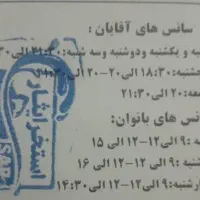 سانس های آقایان :
ه و یکشنبه ودوشنبه وسه شنبه:۲۱:۳۰ الی
جشنبه:۱۸:۳۰ الی۲۰-۲۰ الی
عه:۲۰ الی ۲۱:۳۰
نس های بانوان:
ه :۹ الی۱۲-۱۲ الی ۱۵
ه :۹ الی۱۲-۱۲ الی ۱۶
شنبه:۹ الی۱۲-۱۲ الی۱۴:۳۰
استخر ایثار